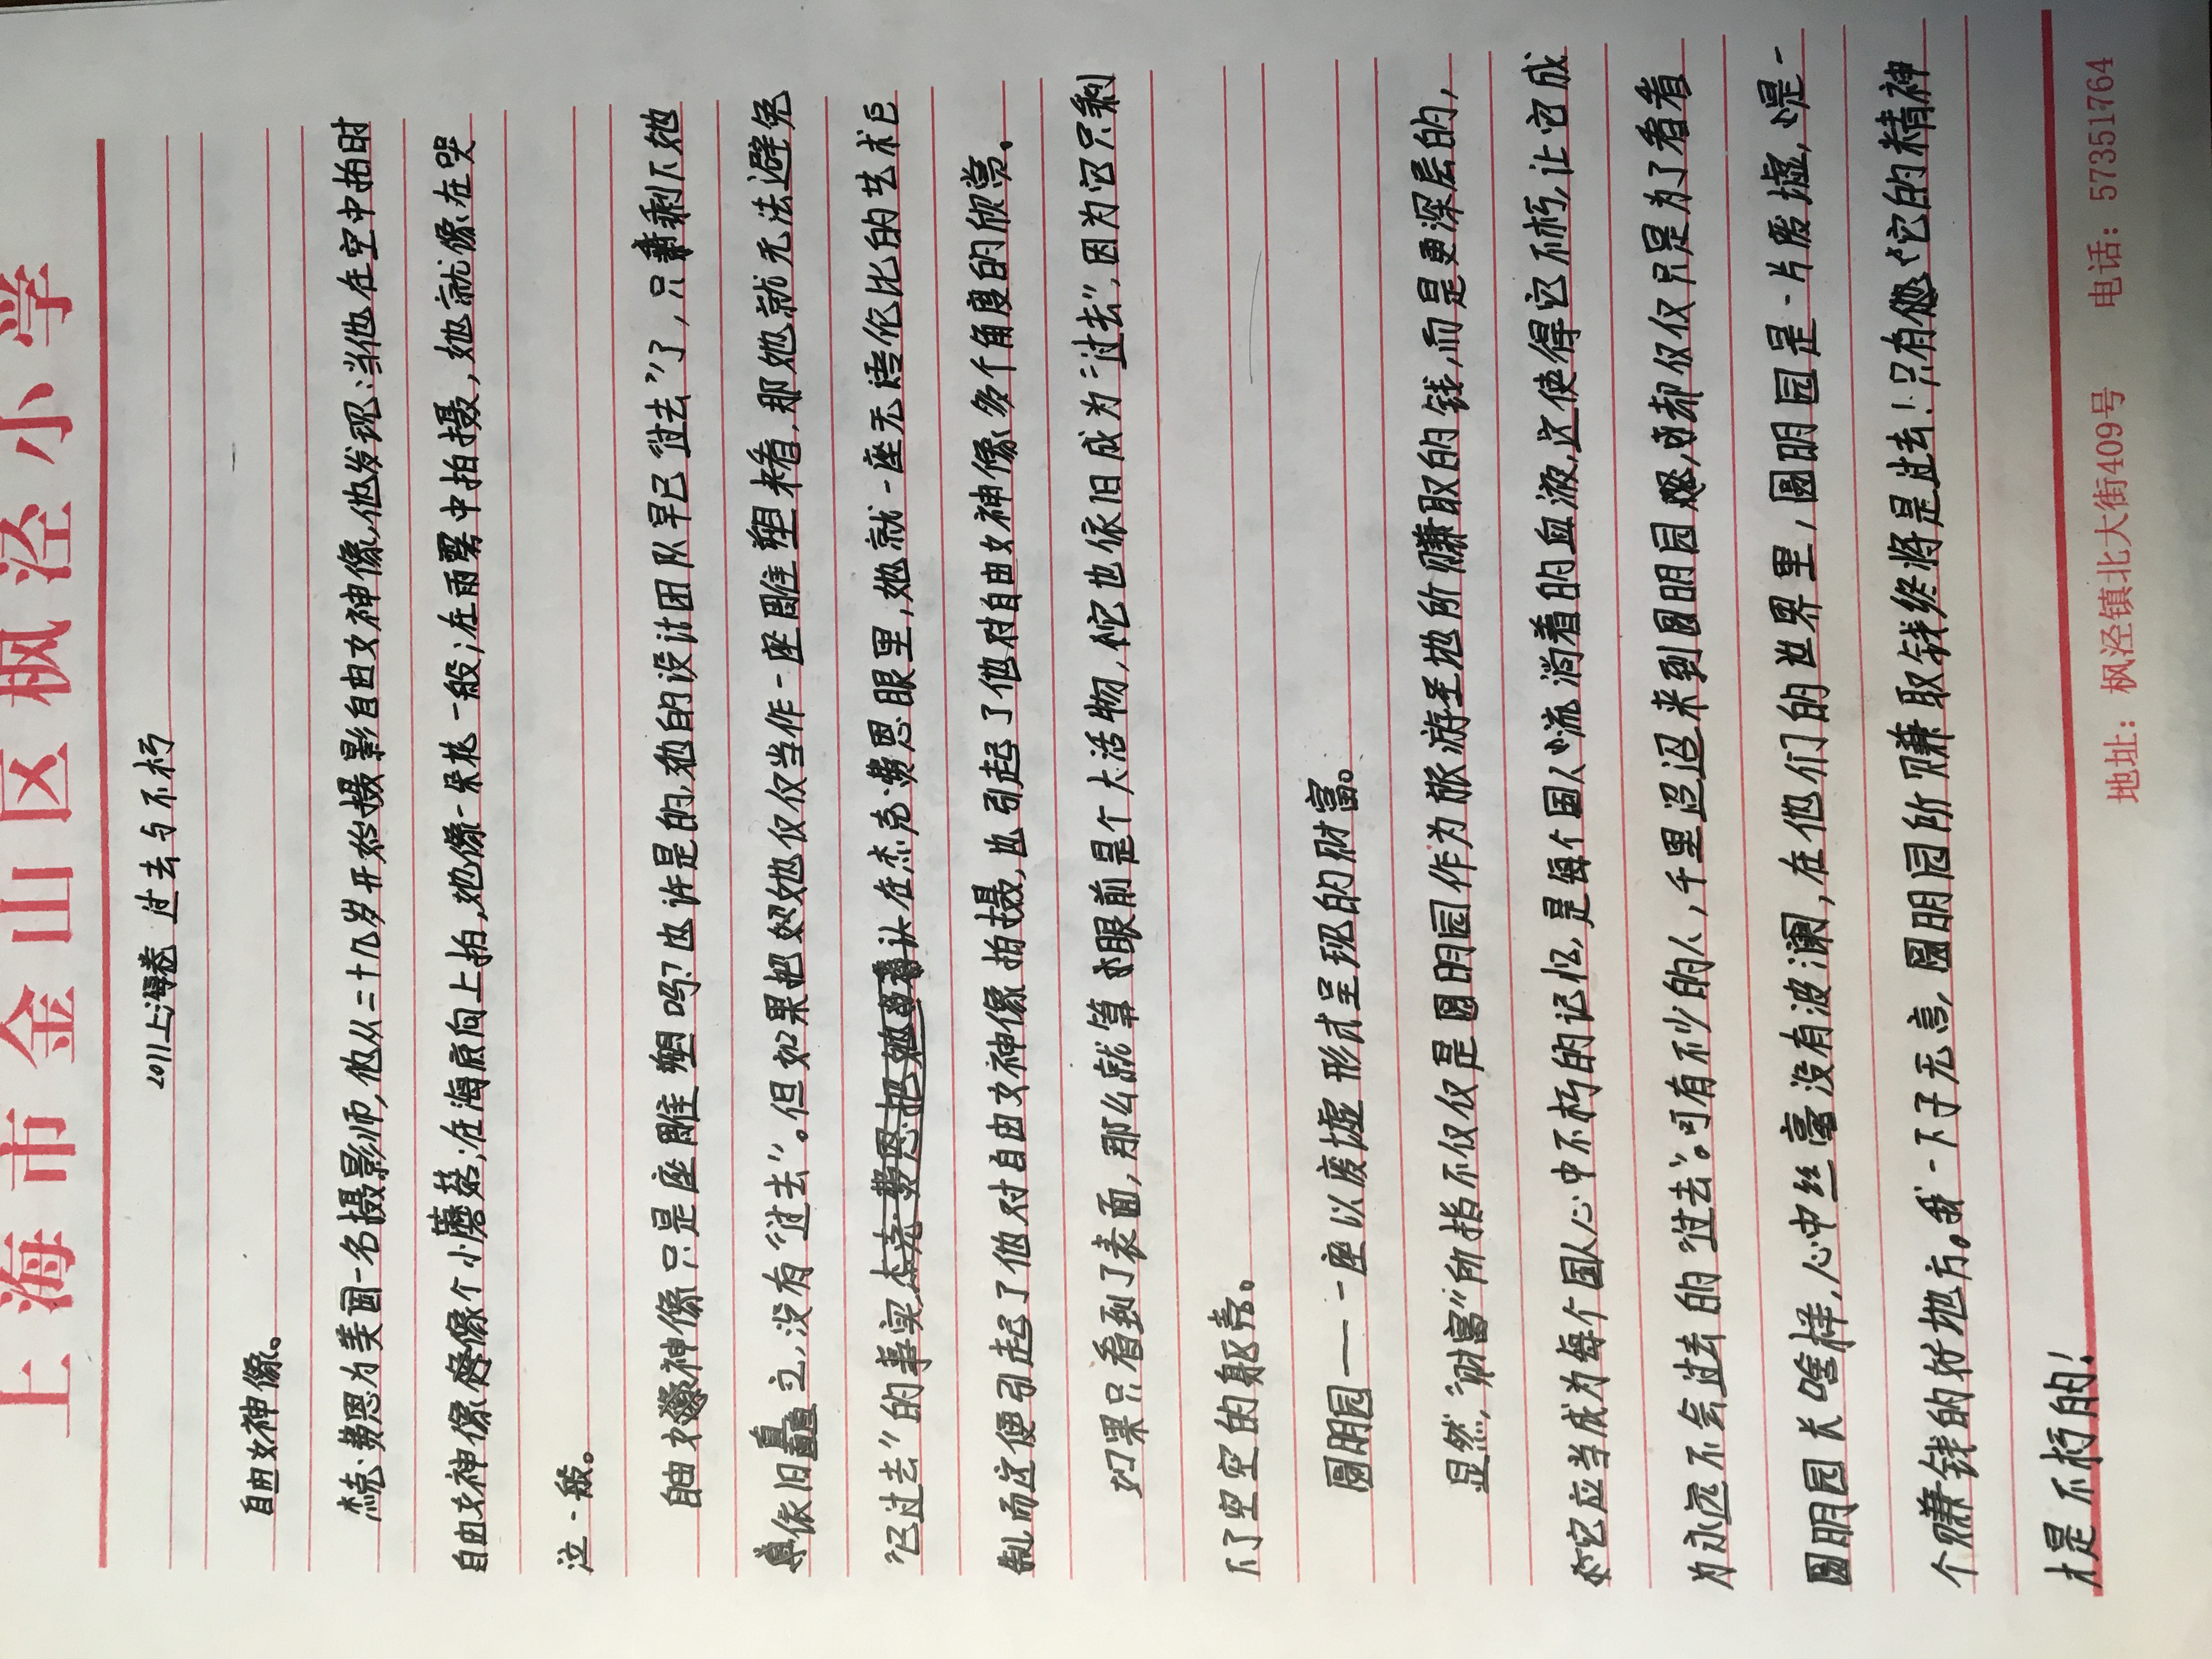 上海市金山区枫泾小学
2011上海卷 过去与不朽
自由女神像。
杰克·费恩为美国一名摄影师,他从三十九岁开始摄影自由女神像,他发现:当他在空中拍时
自由女神像像个小蘑菇;在海底向上拍,她像一朵花一般;在雨雾中拍摄,她就像在哭
泣一般。
自由女神像只是座雕塑吗?也许是的,她的设计团队早已“过去”了,只剩下她
依旧矗立,没有“过去”。但如果把她仅仅当作一座雕塑来看,那她就无法避免
“已过去”的事实,在杰克·费恩眼里,她就一座无语伦比的艺术巨
制而这便引起了他对自由女神像拍摄,也引起了他对自由女神像多个角度的欣赏。
如果只看到了表面,那么就算眼前是个大活物,它也依旧成为“过去”,因为它只剩
下了空空的躯壳。
圆明园——一座以废墟形式呈现的财富。
显然,“财富”所指不仅仅是圆明园作为旅游圣地所赚取的钱,而是更深层的,
它应当成为每个国人心中不朽的记忆,是每个国人流淌着的血液,这使得它不朽,让它成
为永远不会过去的“过去”。可有不少的人,千里迢迢来到圆明园,却仅仅只是为了看看
圆明园长啥样,心中丝毫没有波澜,在他们的世界里,圆明园是一片废墟,是一
个赚钱的好地方。我一下子无言,圆明园所赚取钱终将是过去!只有它的精神
才是不朽的!
地址:枫泾镇北大街409号 电话:57351764